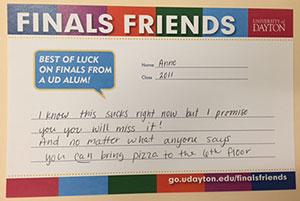 FINALS FRIENDS
UNIVERSITY of
DAYTON
BEST OF LUCK
ON FINALS FROM
A UD ALUM!
Name Anne
Class 2011
I know this sucks right now but I promise
you you will miss it!
And no matter what anyone says
you can bring pizza to the 6th floor
go.udayton.edu/finalsfriends